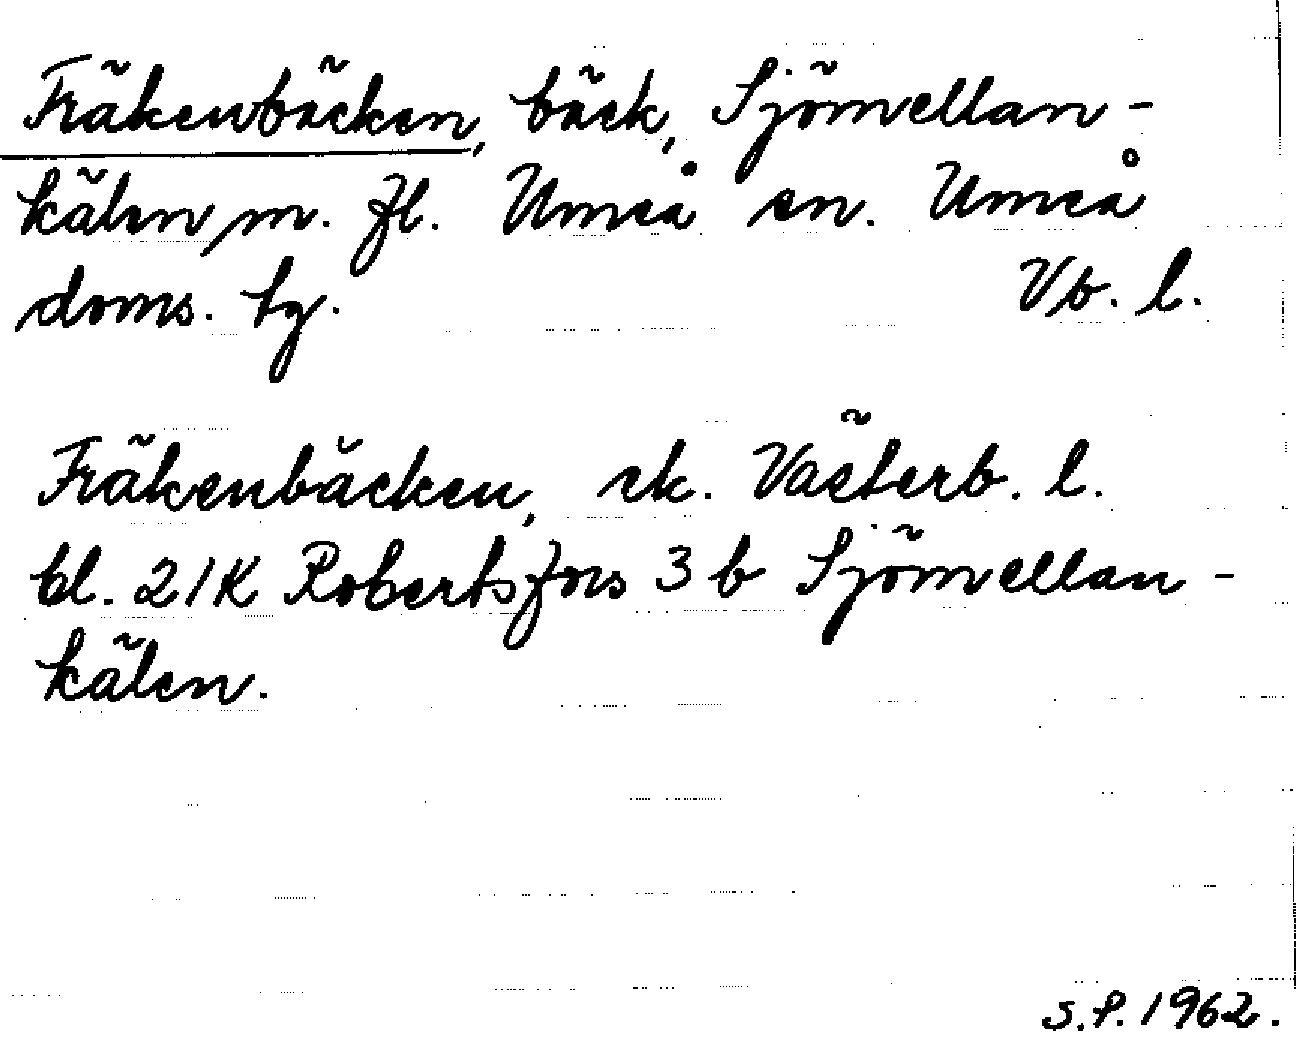 Fräkenbäcken, bäck, Sjömellan-
kälen m. fl. Umeå sn. Umeå
doms. tg. Vb. l.
Fräkenbäcken, ek. Västerb. l.
bl. 21K Robertsfors 3 b Sjömellan-
kälen.
S.P. 1962.